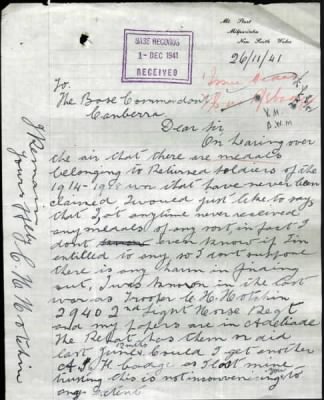 Mt. Poole
Milparinka
New South Wales
26/11/41
BASE RECORDS
1-DEC 1941
RECEIVED
To,
The Base Commandant
Canberra
Dear Sir
On hearing over
the air that there are medals
belonging to Returned soldiers of the
1914-1918 war that have never been
claimed, I would just like to say
that I at anytime never received
any medals of any sort, in fact I
dont even know if I'm
entitled to any, so I dont suppose
there is any harm in finding
out, I was known in the last
war as Trooper C. H. Hotchin
2940 2nd Light Horse Regt
and my papers are in Adelaide
The Repat has them no aid
last June. Could I get another
badge as I lost mine
trusting this is not inconveniencing to
any
I Remain
yours C H Hotchin